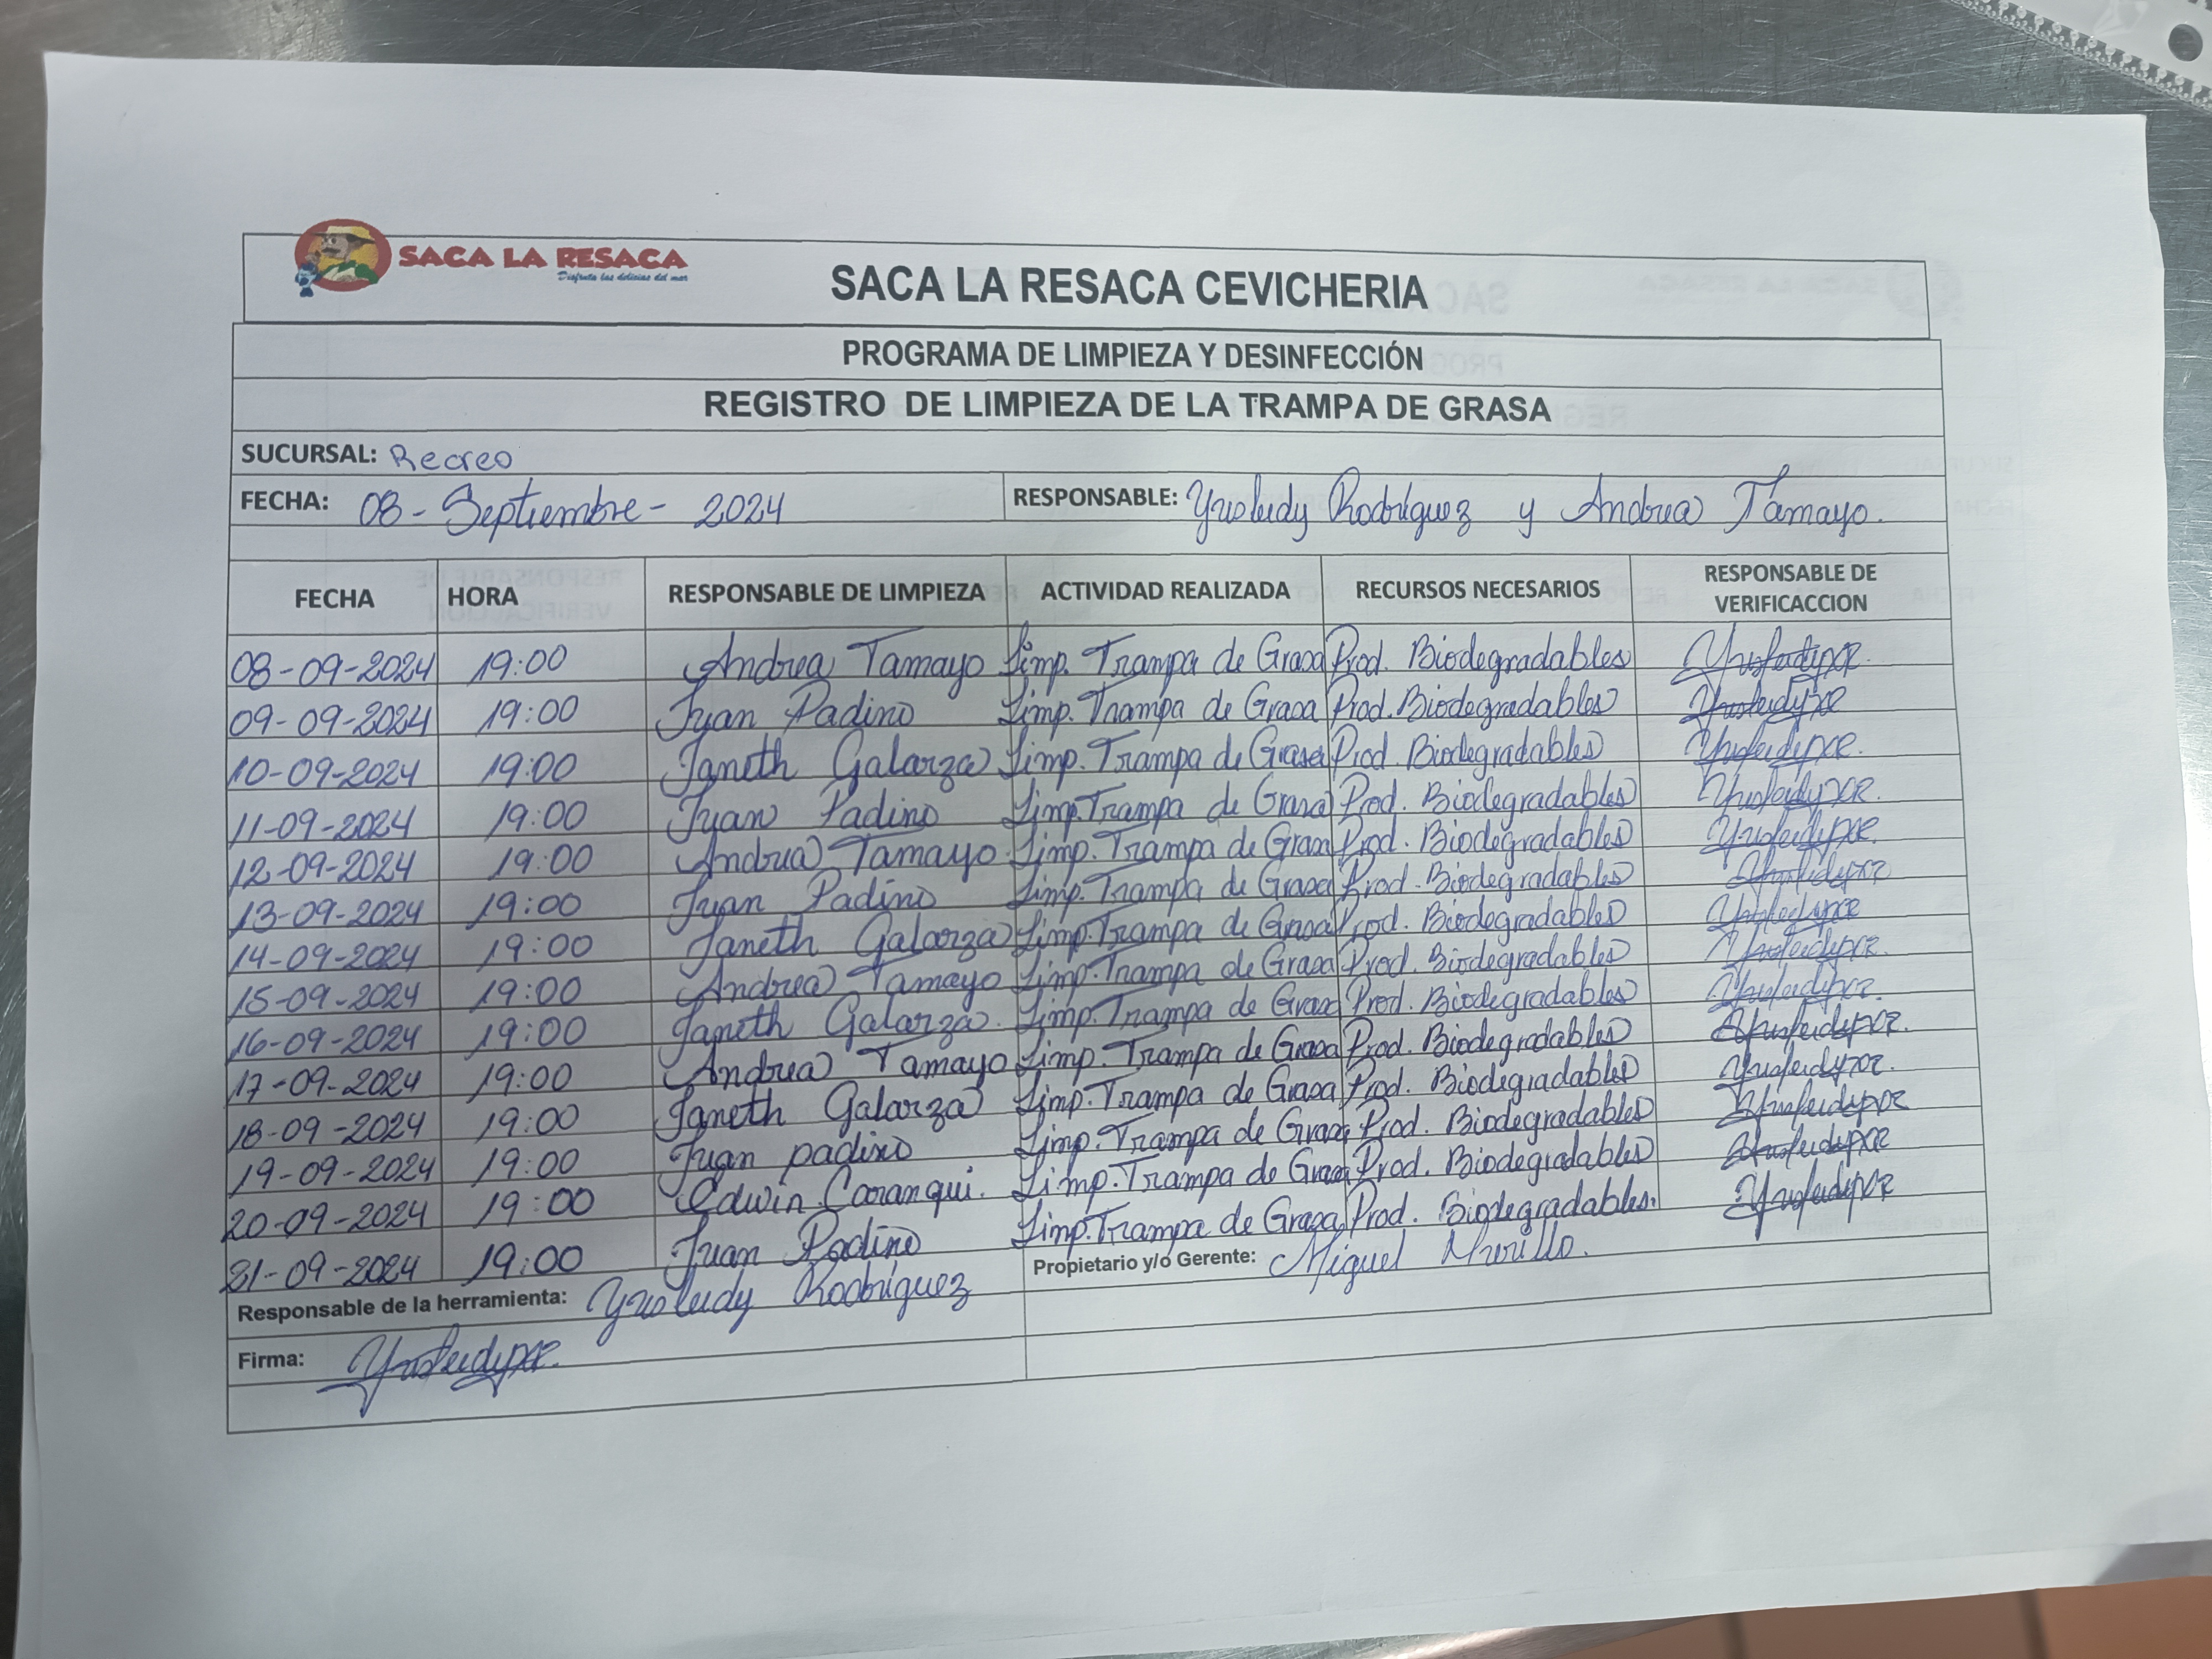 SACA LA RESACA
Disfruta las delicias del mar
SACA LA RESACA CEVICHERIA
PROGRAMA DE LIMPIEZA Y DESINFECCIÓN
REGISTRO DE LIMPIEZA DE LA TRAMPA DE GRASA
SUCURSAL: Recreo
FECHA: 08 - Septiembre - 2024 RESPONSABLE: Yusleidy Rodríguez y Andrea Tamayo.
FECHA HORA RESPONSABLE DE LIMPIEZA ACTIVIDAD REALIZADA RECURSOS NECESARIOS RESPONSABLE DE VERIFICACCION
08-09-2024 19:00 Andrea Tamayo Limp. Trampa de Grasa Prod. Biodegradables
09-09-2024 19:00 Juan Padino Limp. Trampa de Grasa Prod. Biodegradables
10-09-2024 19:00 Janeth Galarza Limp. Trampa de Grasa Prod. Biodegradables
11-09-2024 19:00 Juan Padino Limp. Trampa de Grasa Prod. Biodegradables
12-09-2024 19:00 Andrea Tamayo Limp. Trampa de Grasa Prod. Biodegradables
13-09-2024 19:00 Juan Padino Limp. Trampa de Grasa Prod. Biodegradables
14-09-2024 19:00 Janeth Galarza Limp. Trampa de Grasa Prod. Biodegradables
15-09-2024 19:00 Andrea Tamayo Limp. Trampa de Grasa Prod. Biodegradables
16-09-2024 19:00 Janeth Galarza. Limp. Trampa de Grasa Prod. Biodegradables
17-09-2024 19:00 Andrea Tamayo Limp. Trampa de Grasa Prod. Biodegradables
18-09-2024 19:00 Janeth Galarza Limp. Trampa de Grasa Prod. Biodegradables
19-09-2024 19:00 Juan padino Limp. Trampa de Grasa Prod. Biodegradables
20-09-2024 19:00 Edwin Caranqui. Limp. Trampa de Grasa Prod. Biodegradables
21-09-2024 19:00 Juan Padino Limp. Trampa de Grasa Prod. Biodegradables.
Responsable de la herramienta: Yusleidy Rodríguez Propietario y/o Gerente: Miguel Murillo.
Firma: